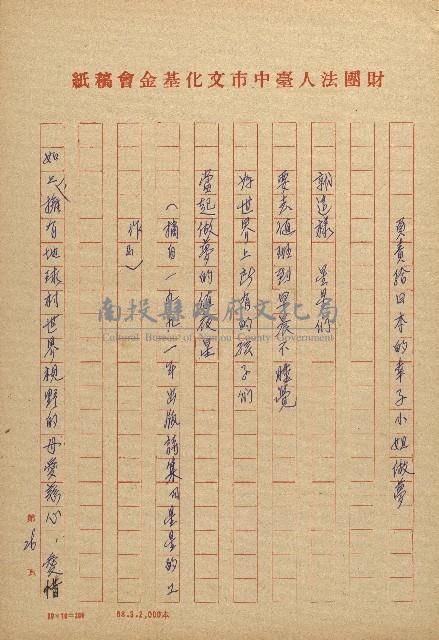 財團法人臺中市文化基金會稿紙
負責給日本的幸子小姐做夢
就這樣 星星們
要去值班到早晨不睡覺
將世界上所有的孩子們
當起做夢的值夜星
(摘自一九九一年出版詩集《星星的工
作》)
如上,擁有地球村世界視野的母愛慈心,愛惜
第 頁
20×10=200 88.3.2,000本
南投縣政府文化局
Cultural Bureau of Nantou County Government